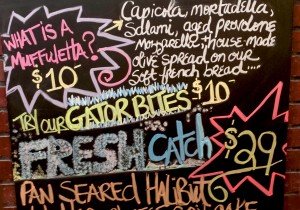 WHAT IS A
MUFFULETTA?
$10
Capicola, mortadella,
Salami, aged provolone
Mozzarella, house made
olive spread on our
soft french bread....
TRY OUR GATOR BITES - $10
FRESH Catch
$29
PAN SEARED HALIBUT